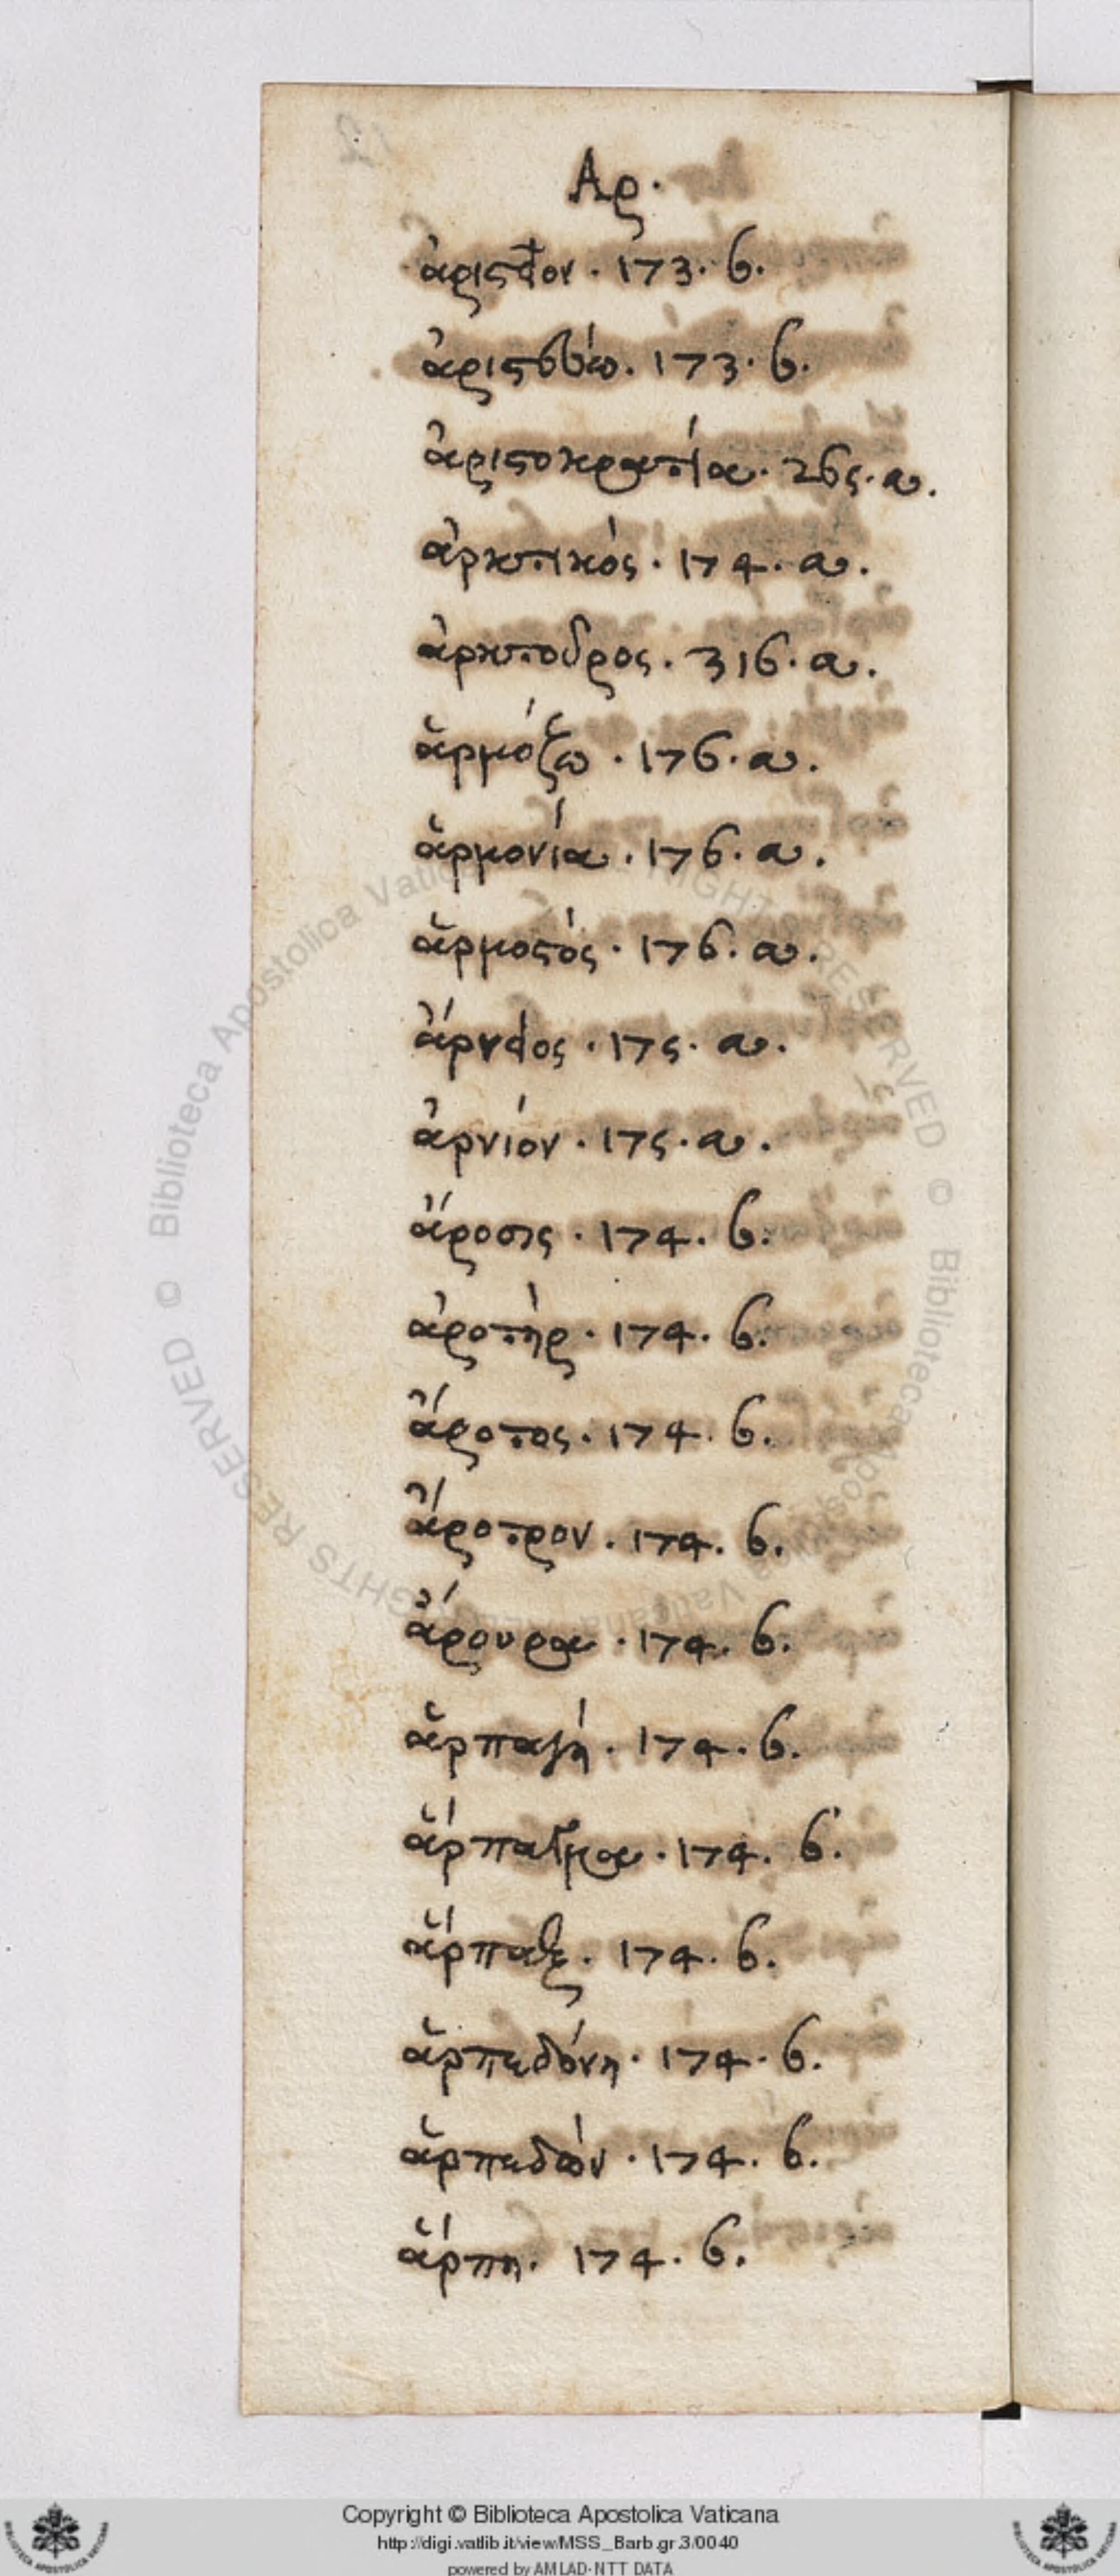 12
Αρ.
ἀριστεῖον. 173. b.
ἀριστεύω. 173. b.
ἀριστοκρατία. 265. a.
ἀρκτικός. 174. a.
316. a.
ἁρμόζω. 176. a.
ἁρμονία. 176. a.
ἁρμοστός. 176. a.
ἄρνειος. 175. a.
ἀρνίον. 175. a.
ἄροσις. 174. b.
ἀροτήρ. 174. b.
ἄροτος. 174. b.
ἄροτρον. 174. b.
ἄρουρα. 174. b.
ἁρπαγή. 174. b.
ἅρπαγμα. 174. b.
ἅρπαξ. 174. b.
ἁρπεδόνη. 174. b.
ἁρπεδών. 174. b.
ἅρπη. 174. b.
© Biblioteca Apostolica Vaticana ALL RIGHTS RESERVED © Biblioteca Apostolica Vaticana ALL RIGHTS RESERVED
Copyright © Biblioteca Apostolica Vaticana
http://digi.vatlib.it/view/MSS_Barb.gr.3/0040
powered by AMLAD-NTT DATA